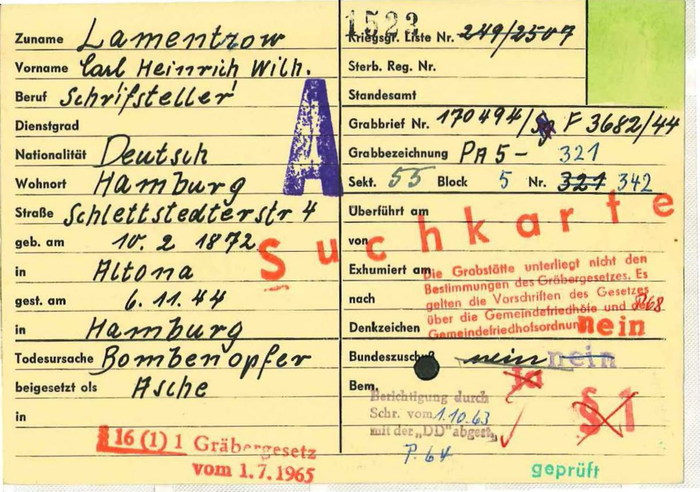 Zuname Lamentzow
Vorname Carl Heinrich Wilh.
Beruf Schrifsteller
Dienstgrad
Nationalität Deutsch
Wohnort Hamburg
Straße Schlettstedterstr 4
geb. am 10. 2 1872
in Altona
gest. am 6. 11. 44
in Hamburg
Todesursache Bombenopfer
beigesetzt als Asche
in
§ 16 (1) 1 Gräbergesetz
vom 1.7.1965
A
Suchkarte
1523
Kriegsgr. Liste Nr. 249/2507
Sterb. Reg. Nr.
Standesamt
Grabbrief Nr. 170494/ F 3682/44
Grabbezeichnung PA 5 - 321
Sekt. 55 Block 5 Nr. 321 342
Überführt am
von
Exhumiert am
nach
Denkzeichen nein
Die Grabstätte unterliegt nicht den
Bestimmungen des Gräbergesetzes. Es
gelten die Vorschriften des Gesetzes
über die Gemeindefriedhöfe und
Gemeindefriedhofsordnung
P.68
Bundeszuschuß nein nein
Ja
Bem.
Berichtigung durch
Schr. vom 1.10.63
mit der „DD" abgest.
P. 64
§ 1
geprüft